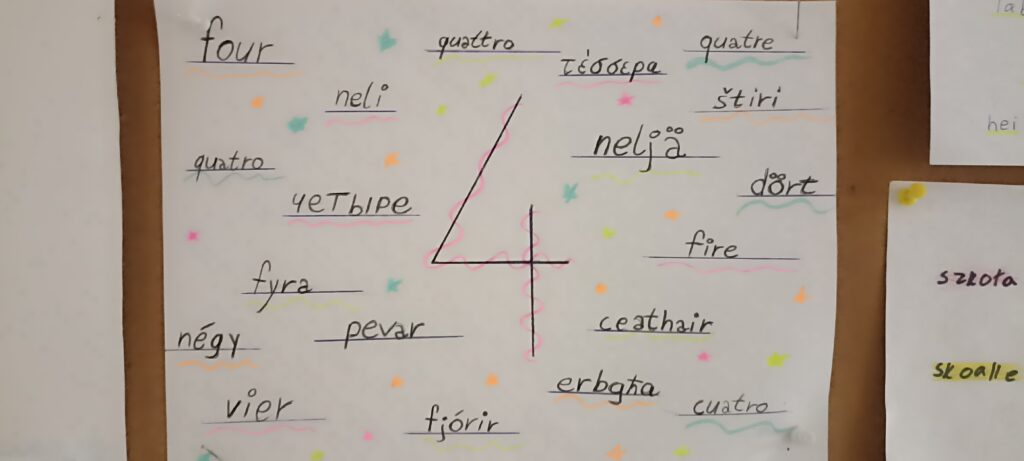 four
quattro
τέσσερα
quatre
neli
štiri
neljä
quatro
dört
четыре
4
fire
fyra
négy
pevar
ceathair
vier
fjórir
erbgħa
cuatro
hei
szkoła
skoalle